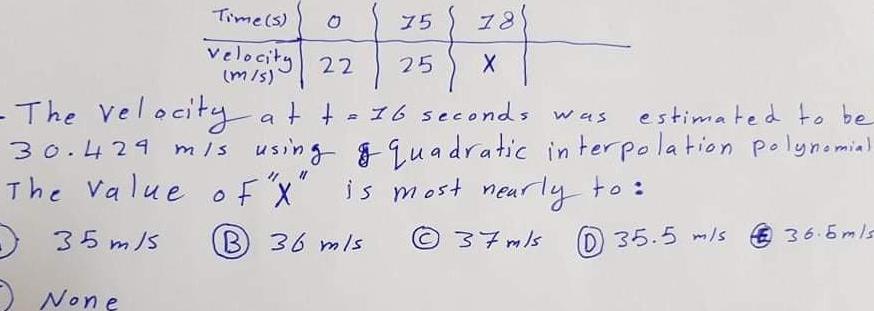 Time(s) 0 15 18
Velocity (m/s) 22 25 X
- The velocity at t = 16 seconds was estimated to be
30.429 m/s using quadratic interpolation polynomial
The value of "X" is most nearly to:
35 m/s (B) 36 m/s (C) 37 m/s (D) 35.5 m/s (E) 36.5 m/s
None